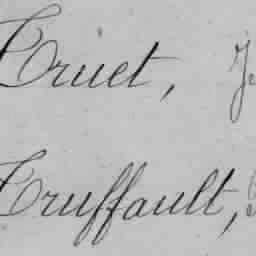 Truet,
Truffault,